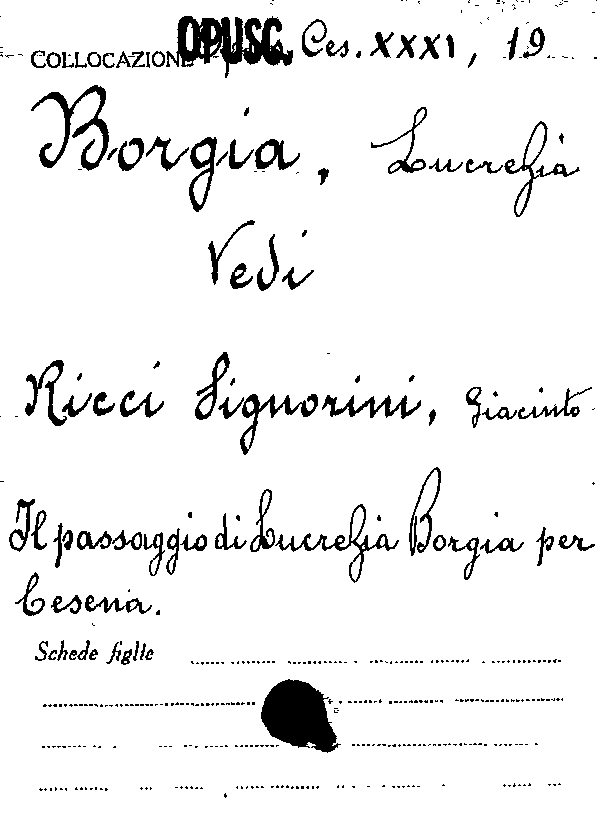 COLLOCAZIONE OPUSC. Ces. XXXI, 19
Borgia, Lucrezia
Vedi
Ricci Signorini, Giacinto
Il passaggio di Lucrezia Borgia per
Cesena.
Schede figlie